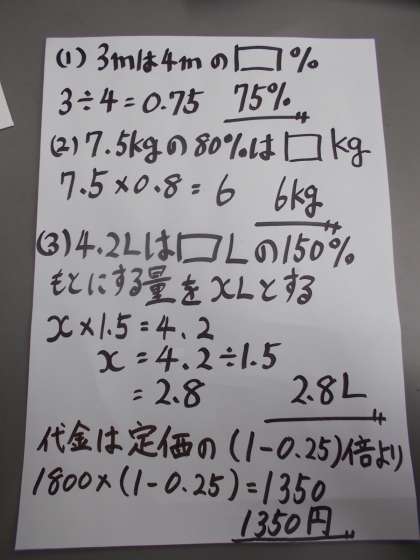 (1) 3mは4mの□%
3÷4=0.75 75%
(2) 7.5kgの80%は□kg
7.5×0.8=6 6kg
(3) 4.2Lは□Lの150%
もとにする量をxLとする
x×1.5=4.2
x=4.2÷1.5
=2.8 2.8L
代金は定価の(1-0.25)倍より
1800×(1-0.25)=1350
1350円